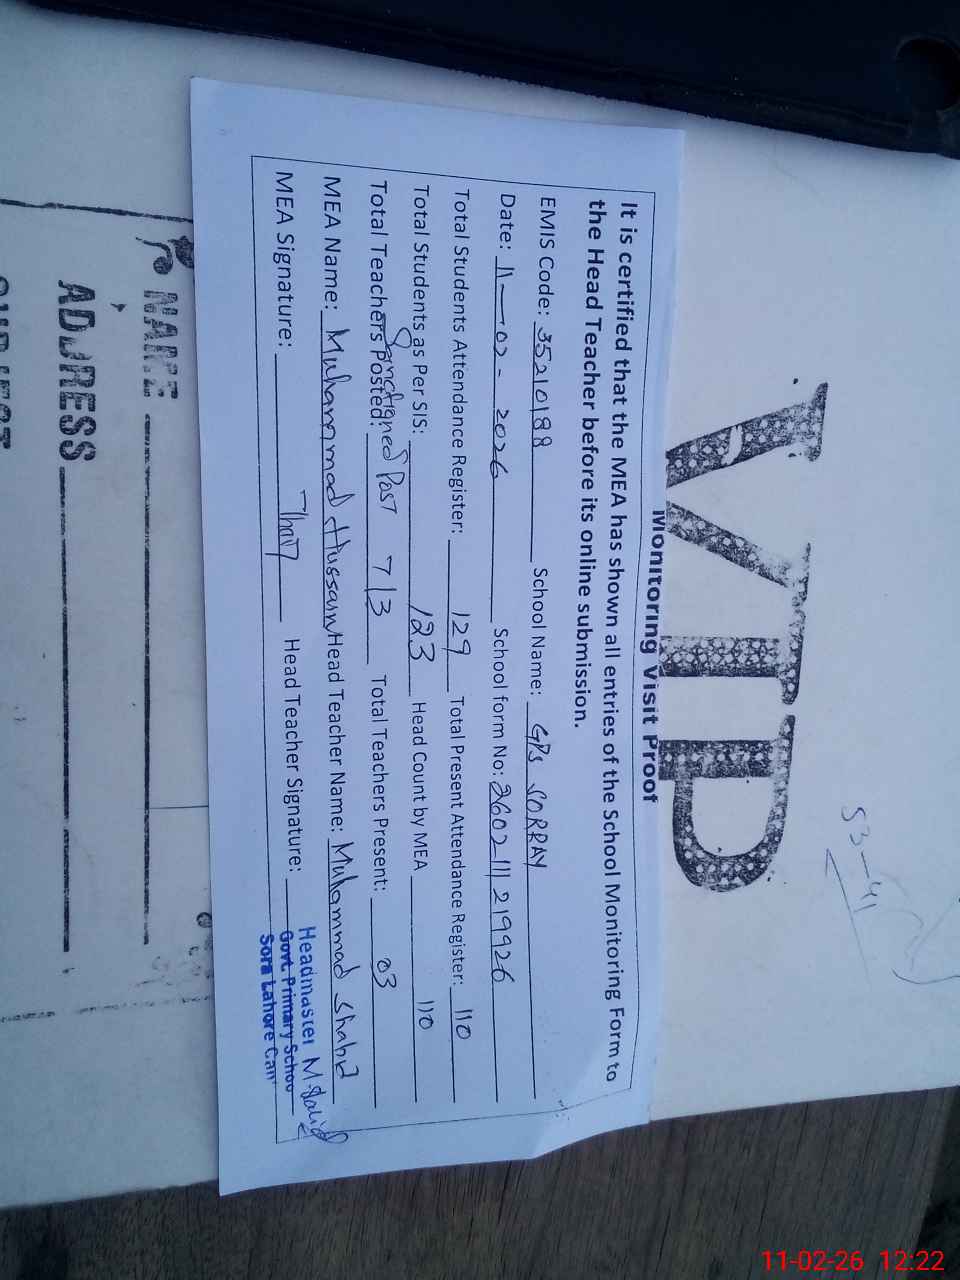 VIP
53-41
Monitoring Visit Proof
It is certified that the MEA has shown all entries of the School Monitoring Form to
the Head Teacher before its online submission.
EMIS Code: 35210188 School Name: GPS SORRAY
Date: 11-02-2026 School form No: 2602111219926
Total Students Attendance Register: 129 Total Present Attendance Register: 110
Total Students as Per SIS: 123 Head Count by MEA 110
Sanctioned Post
Total Teachers Posted: 7/3 Total Teachers Present: 03
MEA Name: Muhammad Hussain Head Teacher Name: Muhammad Shahid
MEA Signature: Head Teacher Signature:
Headmaster M. Shahid
Govt. Primary Schoo
Sora Lahore Can
NAME
ADDRESS
11-02-26 12:22